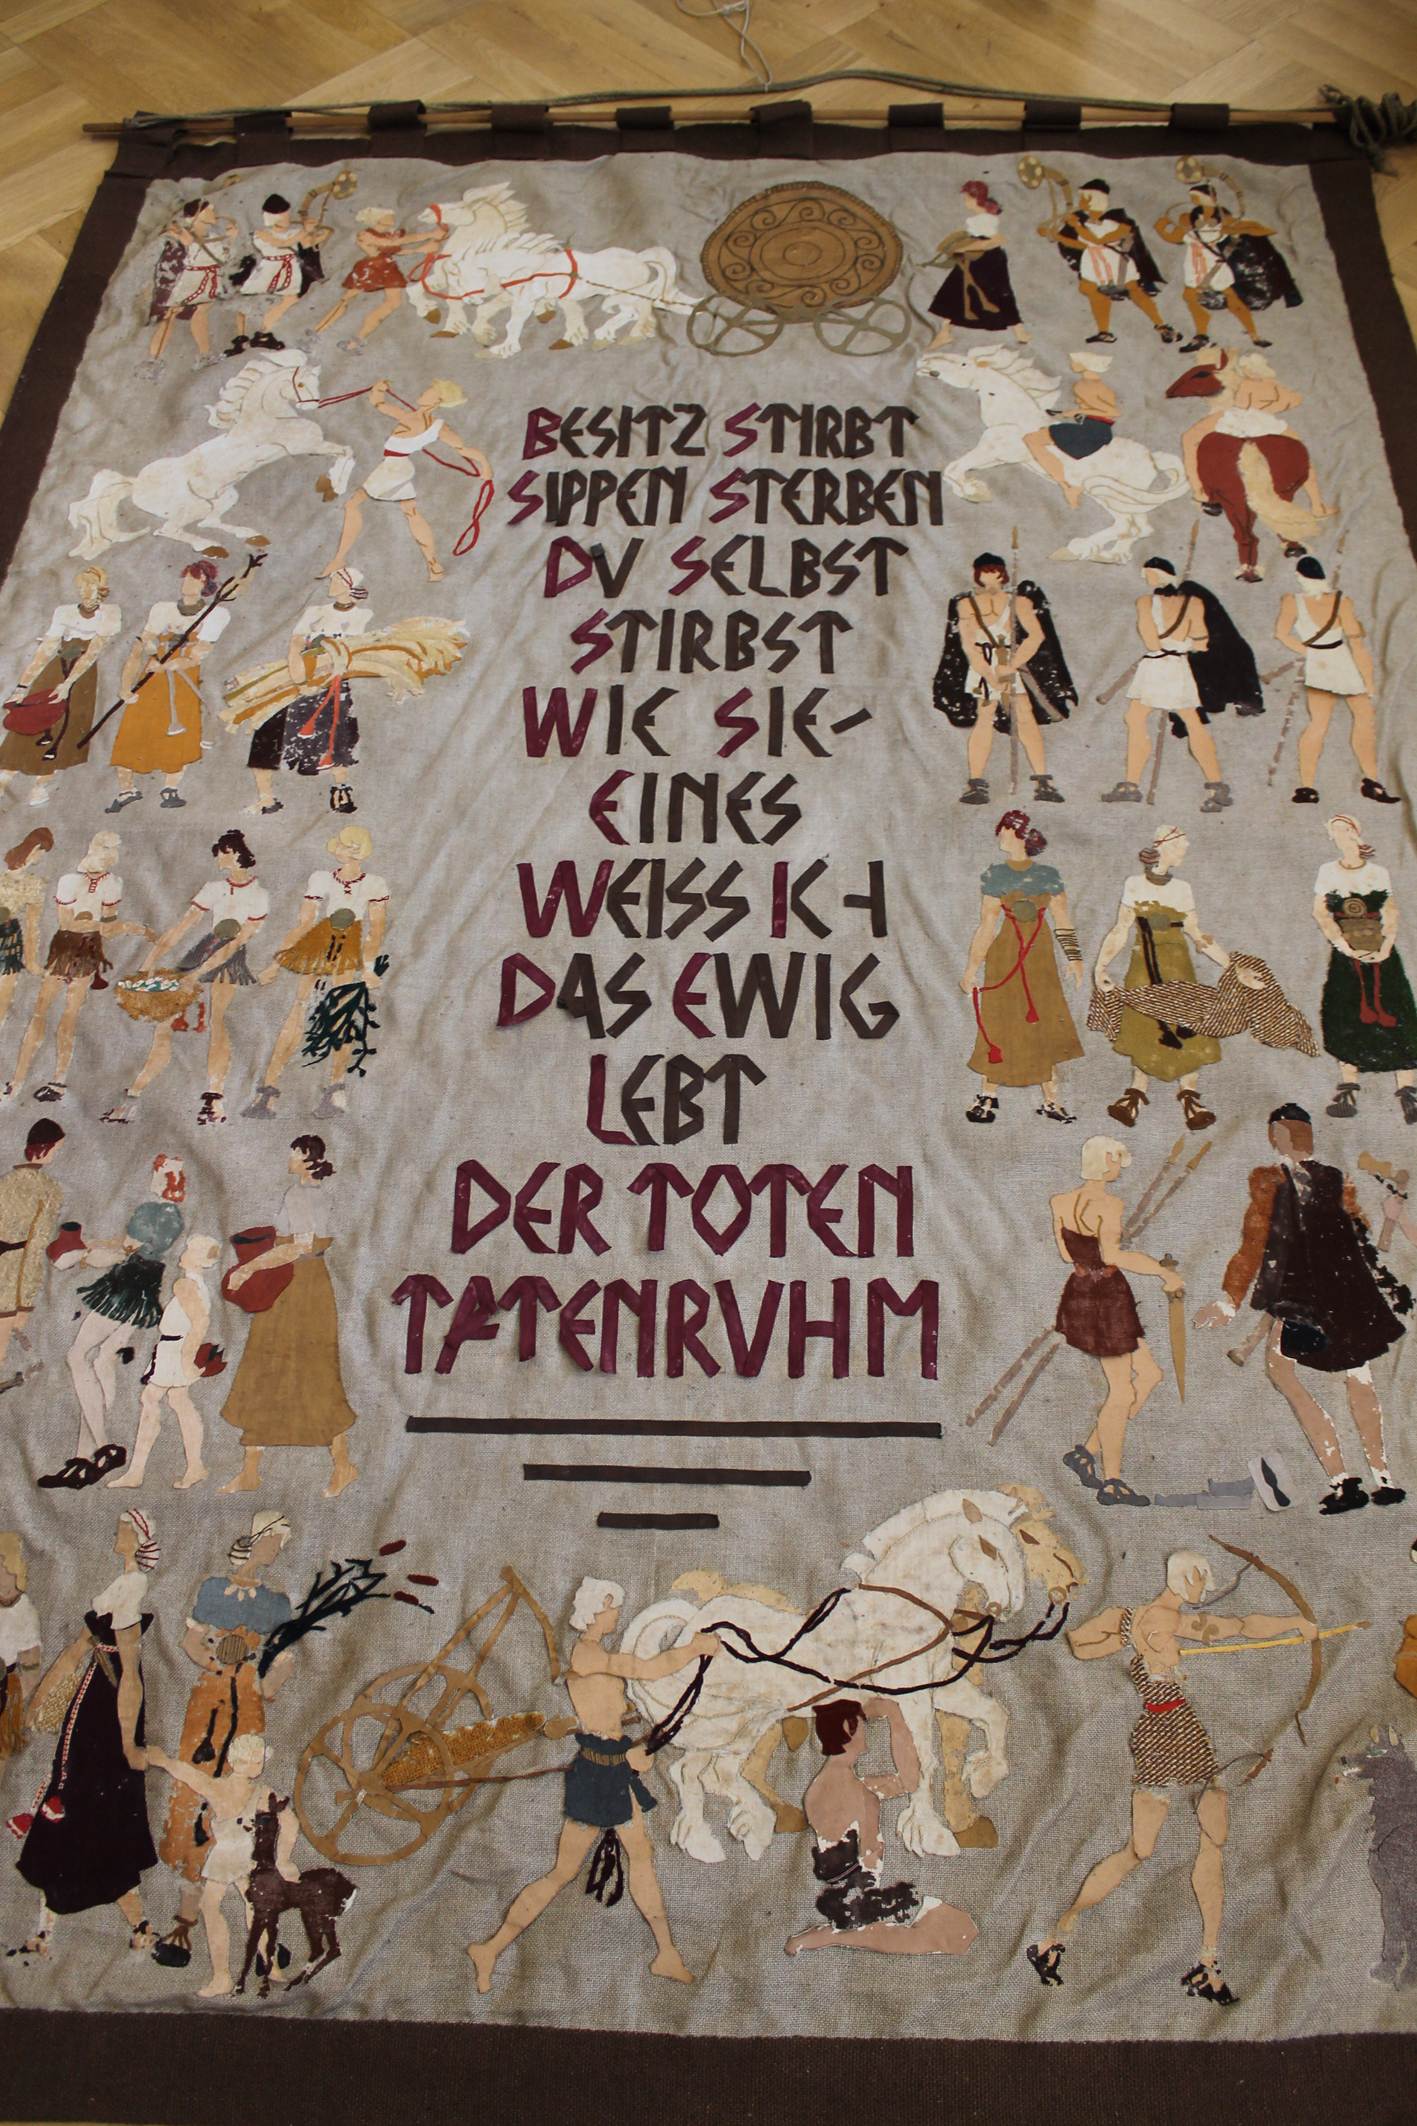 BESITZ STIRBT
SIPPEN STERBEN
DV SELBST
STIRBST
WIE SIE-
EINES
WEISS ICH
DAS EWIG
LEBT
DER TOTEN
TATENRVHM